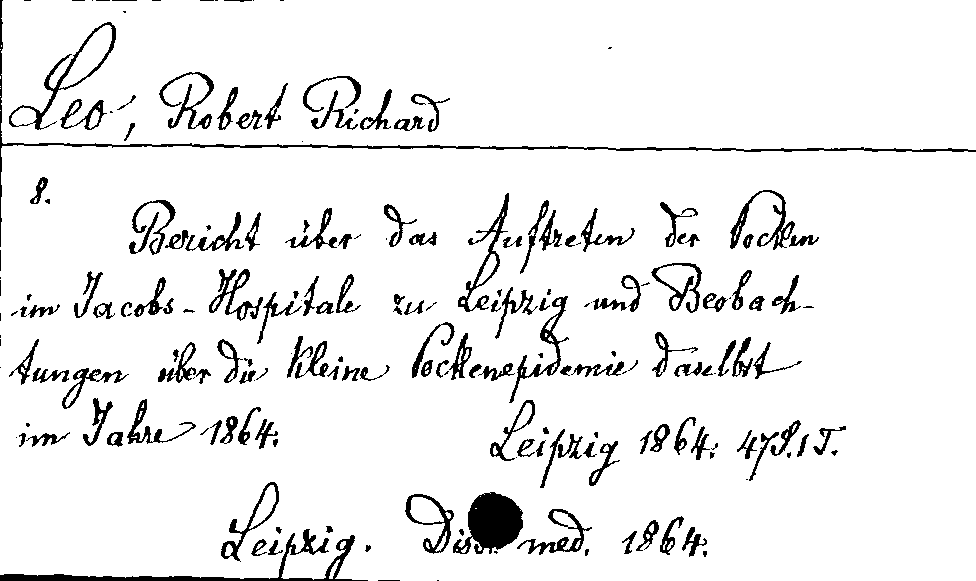 Leo, Robert Richard
8.
Bericht über das Auftreten der Pocken
im Jacobs-Hospitale zu Leipzig und Beobach-
tungen über die kleine Pockenepidemie daselbst
im Jahre 1864.
Leipzig 1864. 47 S. 1 T.
Leipzig. Diss. med. 1864.